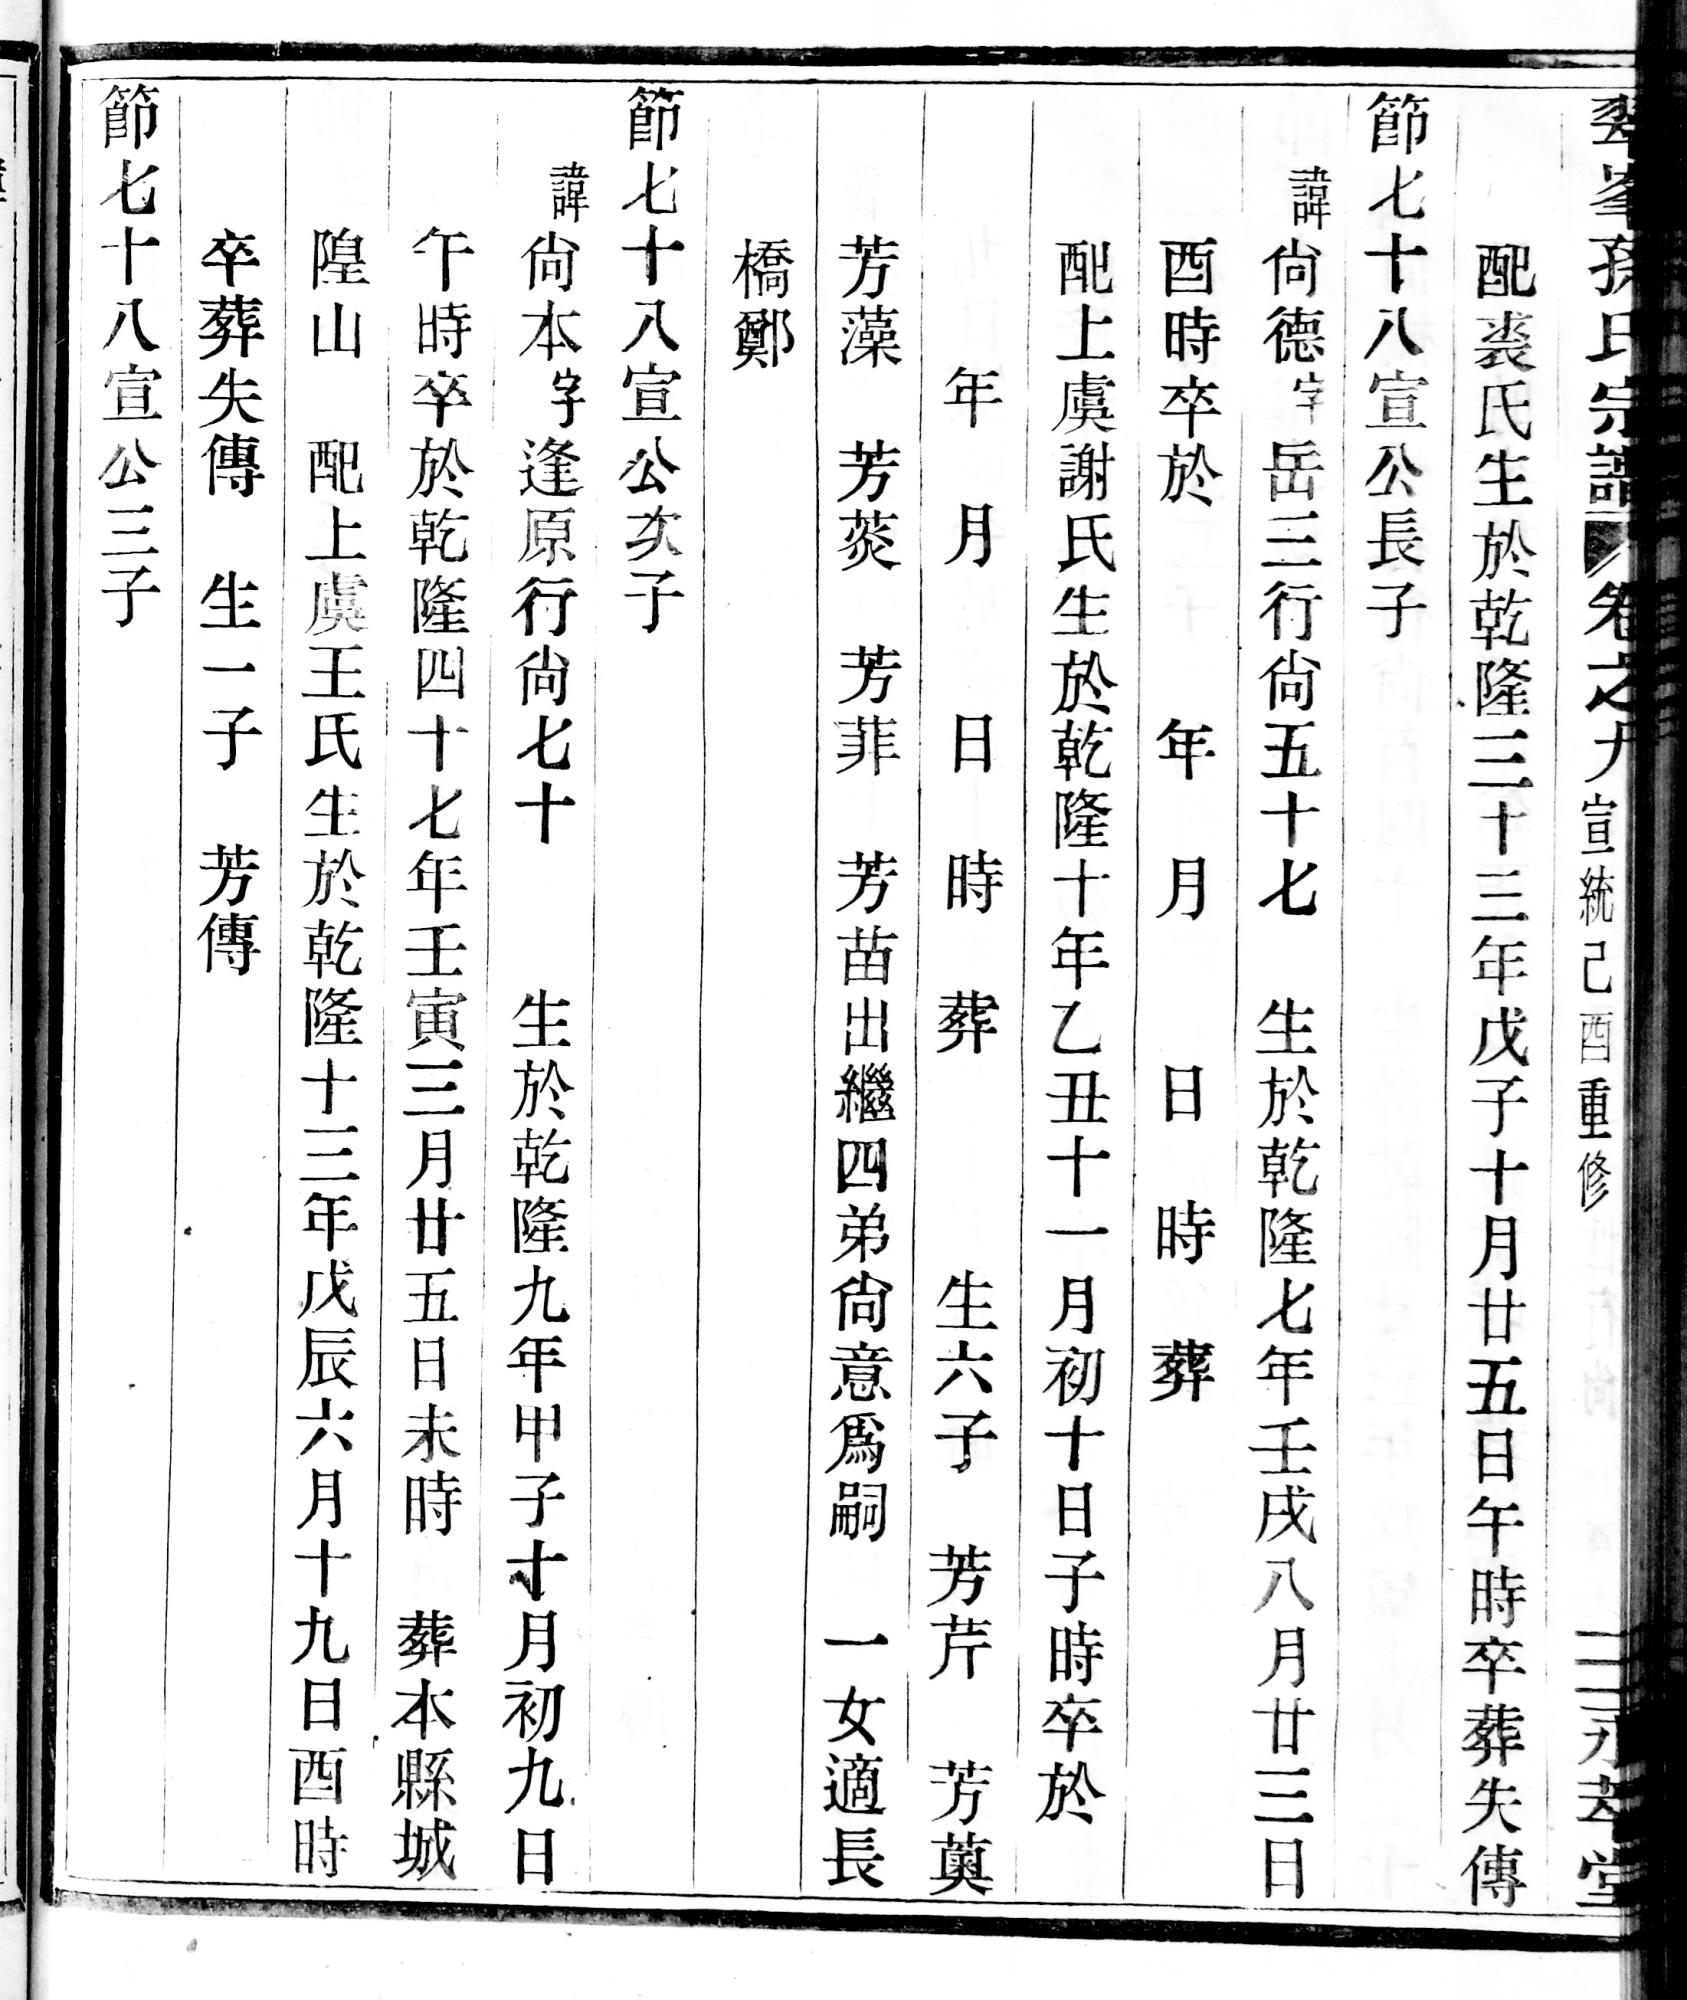 翠峯孫氏宗譜 卷之九 宣統己酉重修 永萃堂
配裘氏生於乾隆三十三年戊子十月廿五日午時卒葬失傳
節七十八宣公長子
諱尙德字岳三行尙五十七 生於乾隆七年壬戌八月廿三日
酉時卒於 年 月 日 時 葬
配上虞謝氏生於乾隆十年乙丑十一月初十日子時卒於
年 月 日 時 葬 生六子 芳芹 芳薁
芳藻 芳菼 芳菲 芳苗出繼四弟尙意爲嗣 一女適長
橋鄭
節七十八宣公次子
諱尙本字逢原行尙七十 生於乾隆九年甲子十月初九日
午時卒於乾隆四十七年壬寅三月廿五日未時 葬本縣城
隍山 配上虞王氏生於乾隆十三年戊辰六月十九日酉時
卒葬失傳 生一子 芳傳
節七十八宣公三子